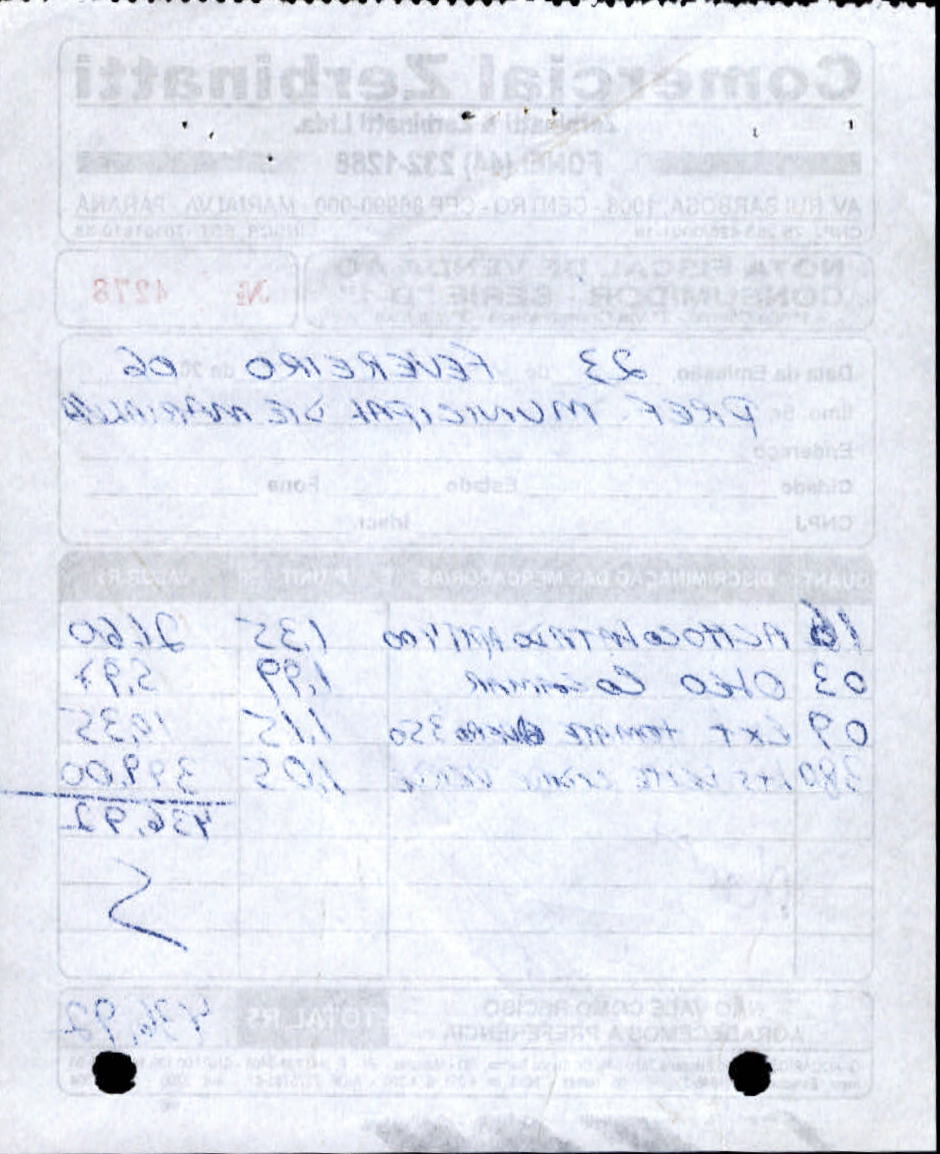 Comercial Zerbinatti
Zerbinatti & Zerbinatti Ltda.
FONE: (44) 232-1288
AV. RUI BARBOSA, 1008 - CENTRO - CEP 86990-000 - MARIALVA - PARANÁ
NOTA FISCAL DE VENDA AO
CONSUMIDOR - SÉRIE "D-1"
Nº 4278
Data da Emissão, 23 de FEVEREIRO de 20 06
Ilmo. Sr. PREF. MUNICIPAL DE MARIALVA
Endereço
Cidade Estado Fone
CNPJ
QUANT. DISCRIMINAÇÃO DAS MERCADORIAS P. UNIT. VALOR R$
16 ACHOCOLATADO 1,35 21,60
03 OLEO COCAMAR 1,99 5,97
09 EXT TOMATE 350 1,15 10,35
380 LTS LEITE 1,05 399,00
436,92
NÃO VALE COMO RECIBO
AGRADECEMOS A PREFERÊNCIA
TOTAL R$ 436,92